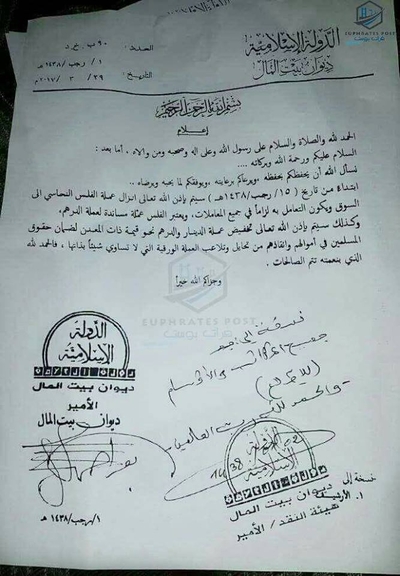 EUPHRATES POST
فرات بوست
الدولة الإسلامية
ديوان بيت المال
العدد: ٩٠ ب ع د
١ / رجب/ ١٤٣٨هـ
التاريخ: ٢٩ / ٣ / ٢٠١٧م
بسم الله الرحمن الرحيم
إعلام
الحمد لله والصلاة والسلام على رسول الله وعلى اله وصحبه ومن والاه. أما بعد:
السلام عليكم ورحمة الله وبركاته ....
نسأل الله أن يحفظكم بحفظه ،ويرعاكم برعايته ،ويوفقكم لما يحبه ويرضاه ..
ابتداءً من تاريخ ( ١٥/ رجب/١٤٣٨هـ ) سيتم بإذن الله تعالى انزال عملة الفلس النحاسي الى
السوق ويكون التعامل به لزاماً في جميع المعاملات، ويعتبر الفلس عملة مساندة لعملة الدرهم،
وكذلك سيتم بإذن الله تعالى تخفيض عملة الدينار والدرهم نحو قيمة ذات المعدن لضمان حقوق
المسلمين في أموالهم وانقاذهم من تحايل وتلاعب العملة الورقية التي لا تساوي شيئاً بذاتها ، فالحمد لله
الذي بنعمته تتم الصالحات .
وجزاكم الله خيراً
EUPHRATES POST
فرات بوست
نسخة إلى
جميع المكاتب
(للاطلاع)
والحمد لله رب العالمين
الدولة
الإسلامية
ديوان بيت المال
الأمير
ديوان بيت المال
١/رجب/١٤٣٨ هـ
الدولة
الإسلامية
ديوان بيت المال
هيئة النقد / الأمير
نسخة إلى
١. الأرشيف